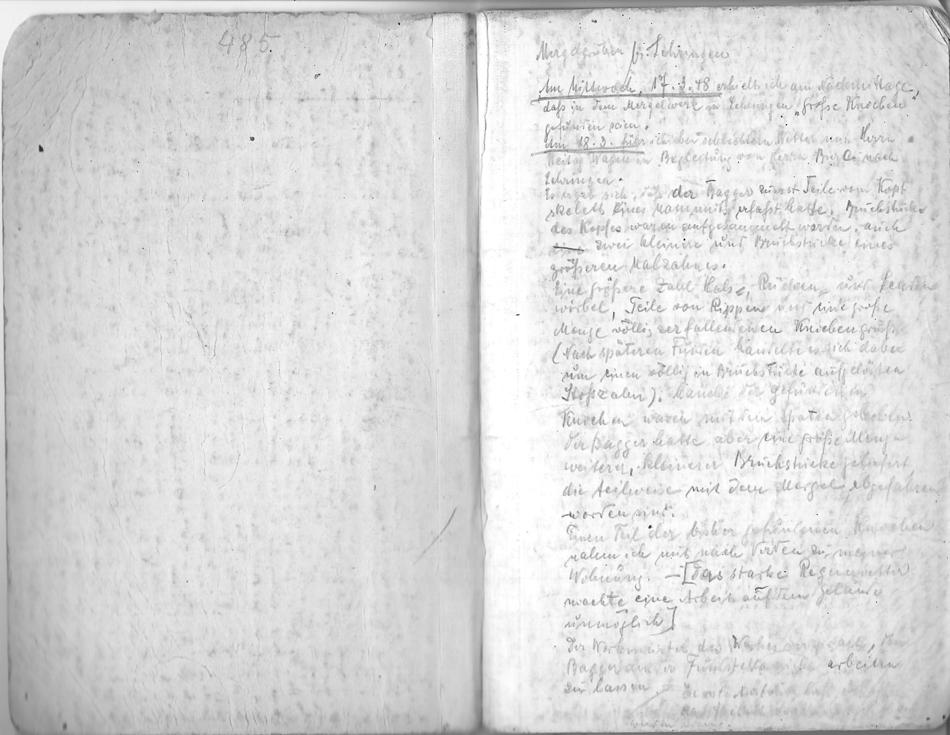 485
Mergelgruben bei Lehringen
Am Mittwoch, 17.3.48 erhielt ich am Nachmittage,
daß in dem Mergelwerk in Lehringen "große Knochen"
gefunden seien.
Am 18.3. fuhr ich bei schlechtem Wetter von Herrn
Wagen in Begleitung von Herrn nach
Lehringen.
Es ergab sich, daß der Bagger zuerst Teile vom Kopf
skelett eines Mammuts erfaßt hatte. Bruchstücke
des Kopfes waren aufgesammelt worden, auch
zwei kleinere und Bruchstücke eines
größeren Malzahnes.
Eine größere Zahl Hals, Rücken und
wirbel, Teile von Rippen und eine große
Menge völlig zerfallenen
(Nach späteren Funden handelte es sich dabei
um einen völlig in Bruchstücke aufgelösten
Stoßzahn). der gefundenen
Knochen waren mit dem Spaten
Der Bagger hatte aber eine große Menge
weiterer, kleinerer Bruchstücke geliefert
die teilweise mit dem Mergel abgefahren
worden sind.
Einen Teil der bisher gefundenen Knochen
nahm ich mit nach Verden zu meiner
Wohnung. – [Das starke Regenwetter
machte eine Arbeit auf dem Gelände
unmöglich]
Der Werkmeister des Werkes versprach, den
Bagger an der Fundstelle nicht arbeiten
zu lassen